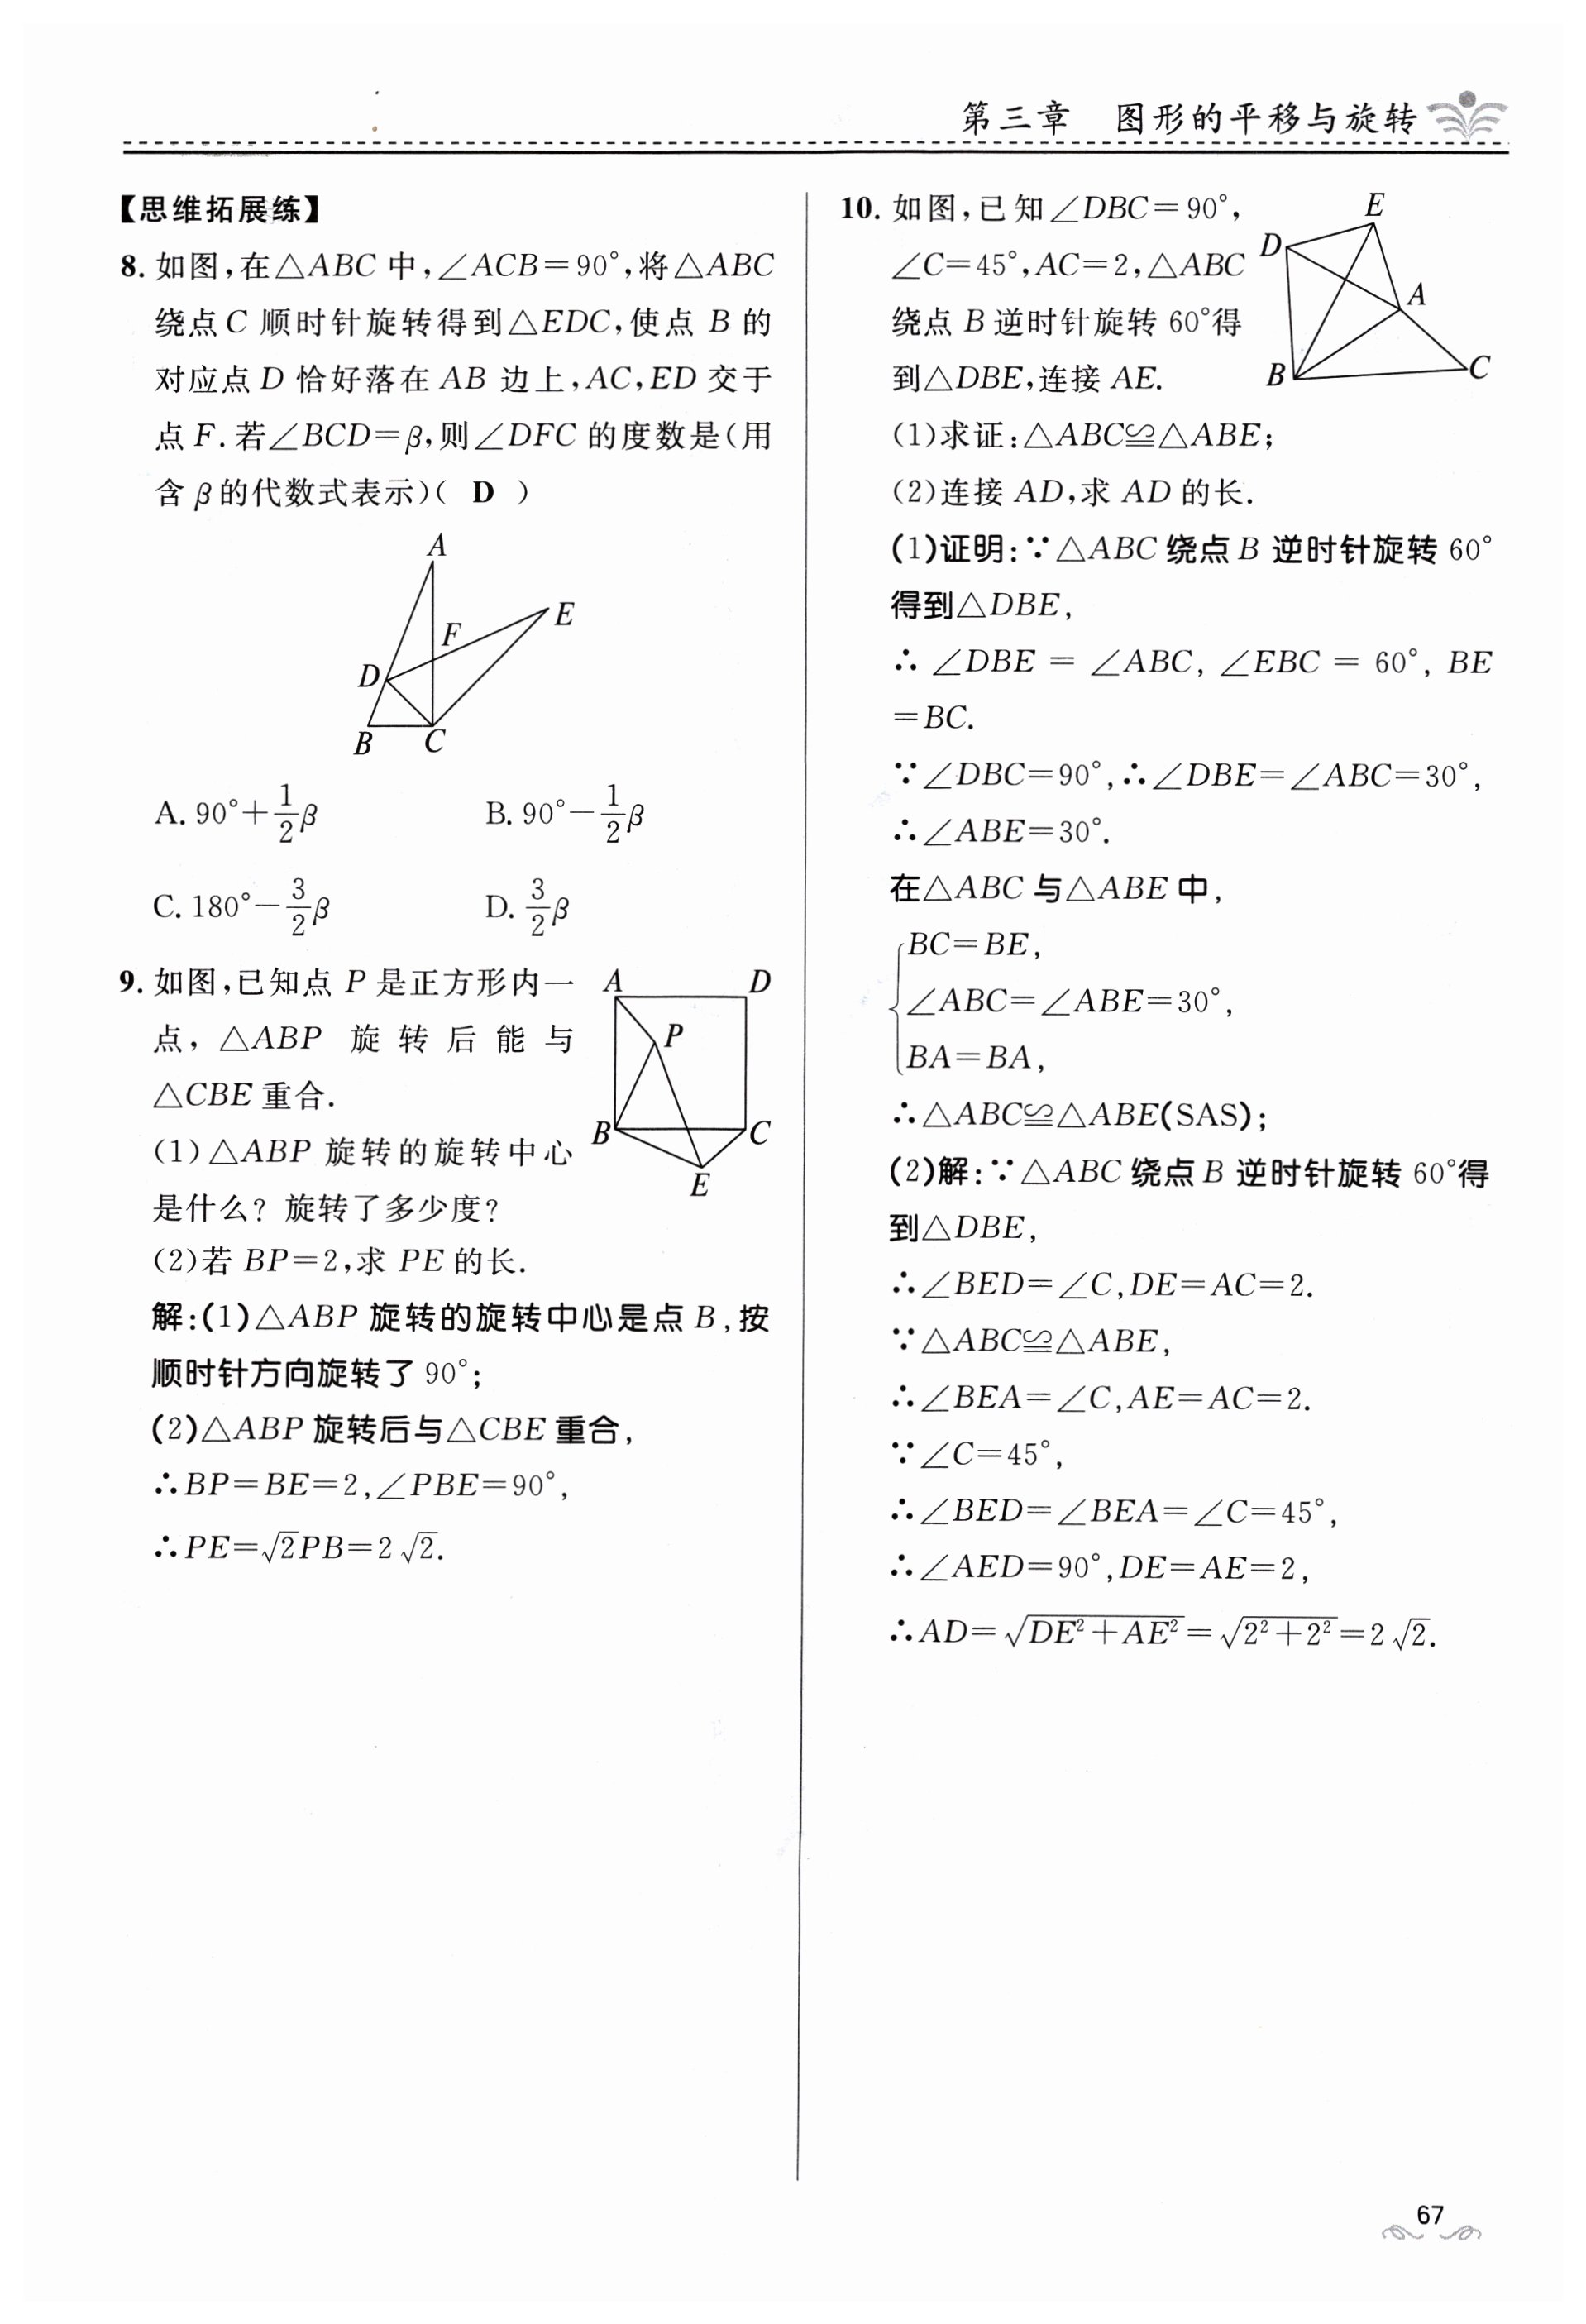 第三章 图形的平移与旋转
【思维拓展练】
8. 如图,在△ABC 中,∠ACB=90°,将△ABC
绕点 C 顺时针旋转得到△EDC,使点 B 的
对应点 D 恰好落在 AB 边上,AC,ED 交于
点 F. 若∠BCD=β,则∠DFC 的度数是(用
含 β 的代数式表示)( D )
A
E
F
D
B
C
A. 90°+1/2β B. 90°-1/2β
C. 180°-3/2β D. 3/2β
9. 如图,已知点 P 是正方形内一
点,△ABP 旋转后能与
△CBE 重合.
(1)△ABP 旋转的旋转中心
是什么? 旋转了多少度?
(2)若 BP=2,求 PE 的长.
A
D
P
B
C
E
解:(1)△ABP 旋转的旋转中心是点 B,按
顺时针方向旋转了 90°;
(2)△ABP 旋转后与△CBE 重合,
∴BP=BE=2,∠PBE=90°,
∴PE=√2PB=2√2.
10. 如图,已知∠DBC=90°,
∠C=45°,AC=2,△ABC
绕点 B 逆时针旋转 60°得
到△DBE,连接 AE.
E
D
A
B
C
(1)求证:△ABC≌△ABE;
(2)连接 AD,求 AD 的长.
(1)证明:∵△ABC 绕点 B 逆时针旋转 60°
得到△DBE,
∴∠DBE=∠ABC,∠EBC=60°,BE
=BC.
∵∠DBC=90°,∴∠DBE=∠ABC=30°,
∴∠ABE=30°.
在△ABC 与△ABE 中,
BC=BE,
∠ABC=∠ABE=30°,
BA=BA,
∴△ABC≌△ABE(SAS);
(2)解:∵△ABC 绕点 B 逆时针旋转 60°得
到△DBE,
∴∠BED=∠C,DE=AC=2.
∵△ABC≌△ABE,
∴∠BEA=∠C,AE=AC=2.
∵∠C=45°,
∴∠BED=∠BEA=∠C=45°,
∴∠AED=90°,DE=AE=2,
∴AD=√(DE²+AE²)=√(2²+2²)=2√2.
67